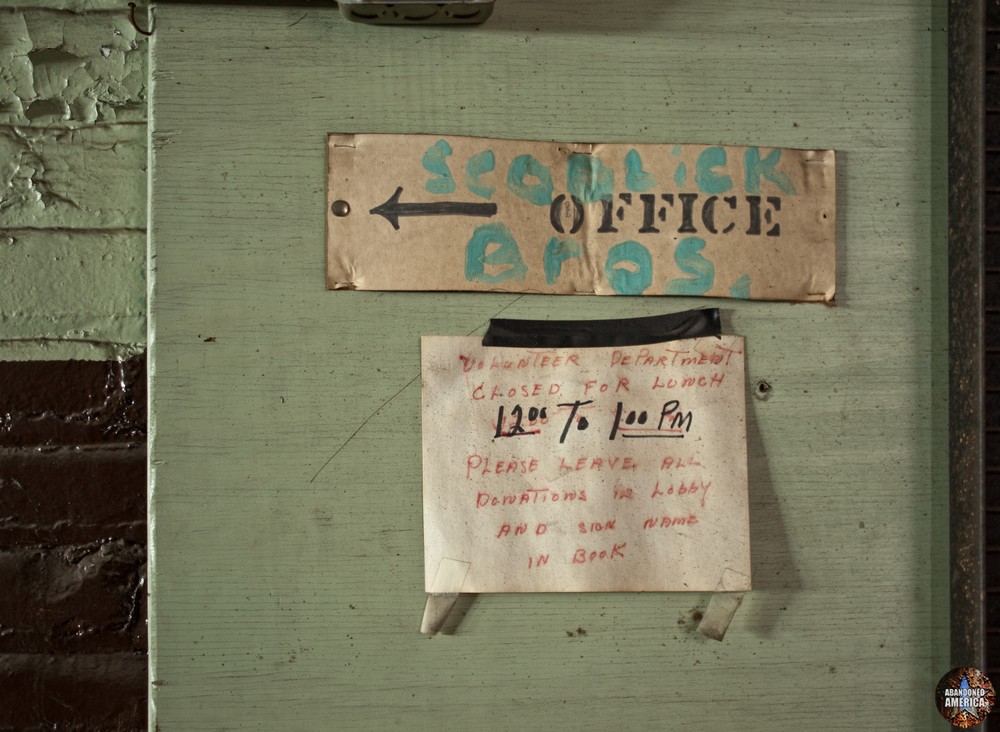 SCOBLiCK
OFFICE
Bros.
VOLUNTEER DEPARTMENT
CLOSED FOR LUNCH
1200 To 1:00 PM
PLEASE LEAVE ALL
DONATIONS IN LOBBY
AND SIGN NAME
IN BOOK
ABANDONED
AMERICA